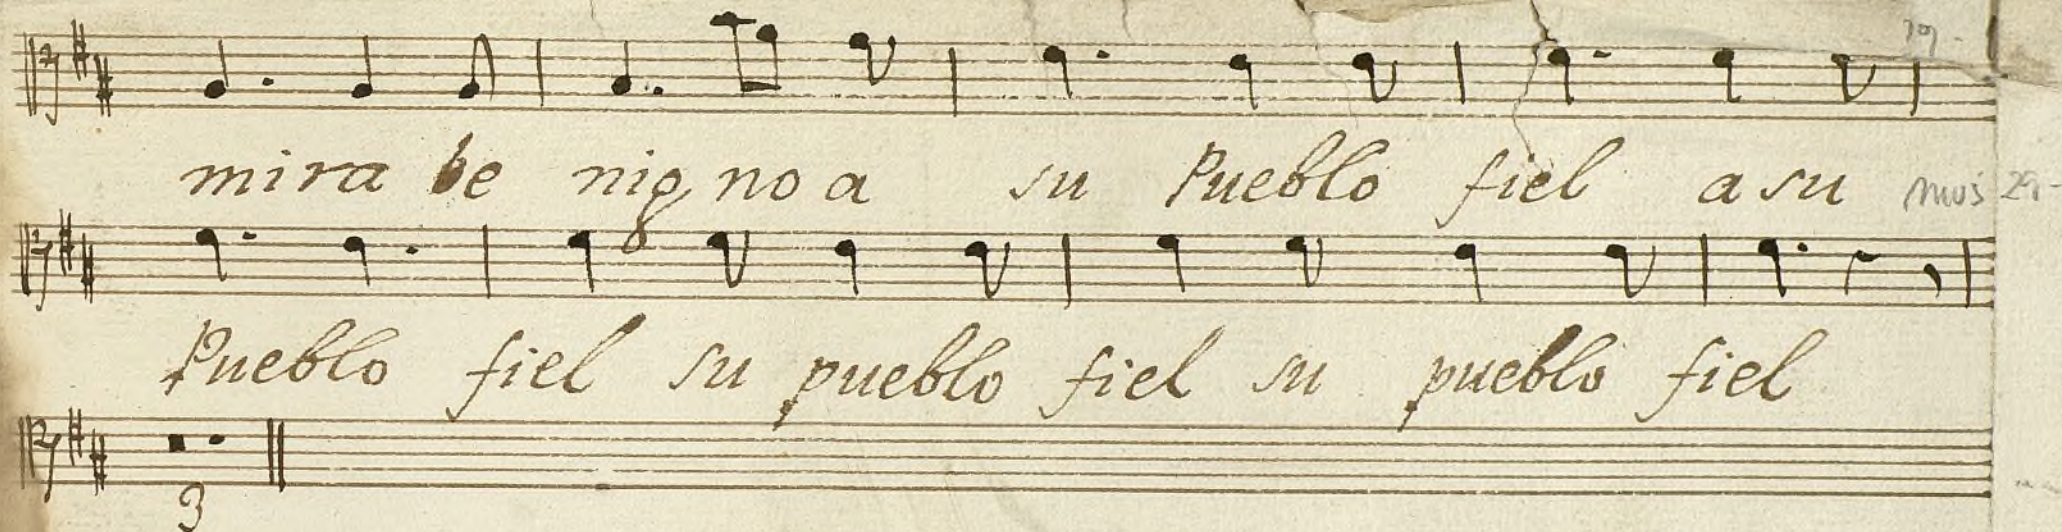 mira be nig no a su Pueblo fiel a su
Pueblo fiel su pueblo fiel su pueblo fiel
3